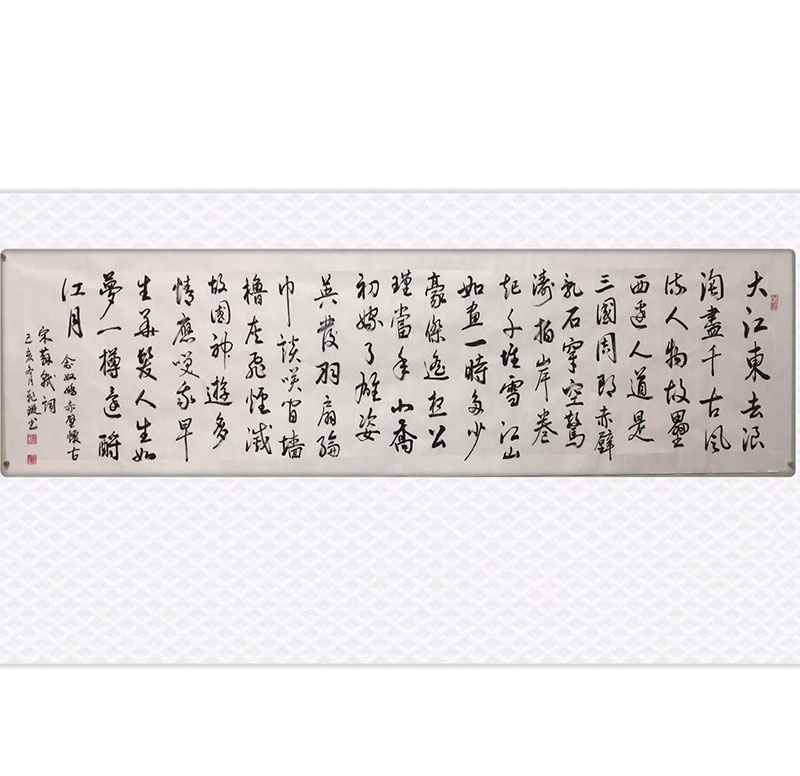 大江東去浪
淘盡千古風
流人物故壘
西邊人道是
三國周郎赤壁
乱石穿空驚
濤拍岸卷
起千堆雪江山
如画一時多少
豪傑遙想公
瑾當年小喬
初嫁了雄姿
英發羽扇綸
巾談笑間墙
櫓灰飛煙滅
故國神遊多
情應笑我早
生華髮人生如
夢一樽還酹
江月
念奴嬌赤壁懷古
宋蘇軾詞
己亥冬月